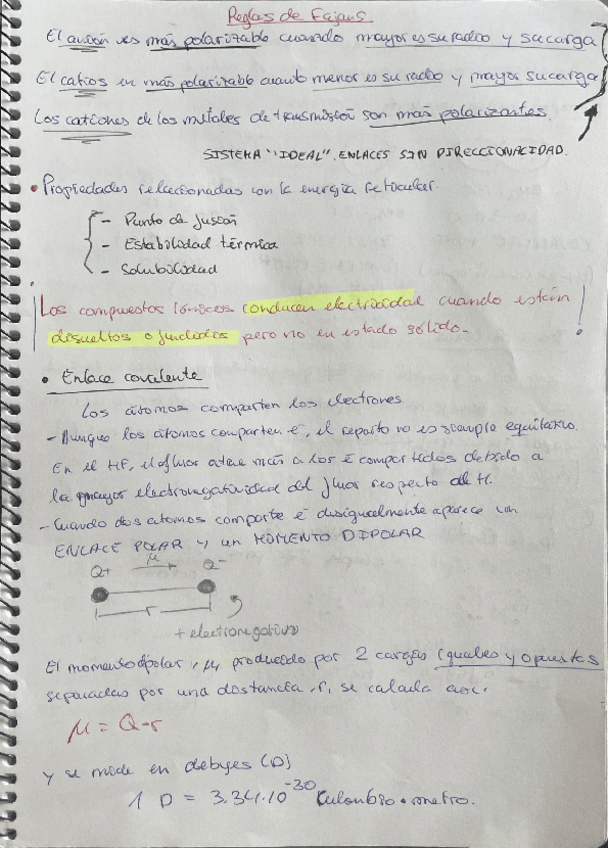 Reglas de Fajans.
El anión es más polarizable cuando mayor es su radio y su carga
El catios en más polarizable cuanto menor es su radio y mayor su carga
Los cationes de los metales de transmisión son más polarizantes.
SISTEMA "IDEAL". ENLACES SIN DIRECCIONALIDAD.
• Propiedades relaccionadas con la energía reticular.
- Punto de fusión
- Estabilidad térmica
- Solubilidad
Los compuestos iónicos conducen electricidad cuando están
disueltos o fundidos pero no en estado sólido.
• Enlace covalente
Los átomos comparten los electrones
- Aunque los átomos comparten e⁻, el reparto no es siempre equitativo.
En el HF, el fluor atrae más a los e⁻ compartidos debido a
la mayor electronegatividad del fluor respecto al H.
- Cuando dos atomos comparte e⁻ desigualmente aparece un
ENLACE POLAR y un MOMENTO DIPOLAR
Q+ μ Q-
r
+ electronegativo
El momento dipolar, μ, producido por 2 cargas iguales y opuestas
separadas por una distancia, r, se calcula
μ = Q·r
y se mide en debyes (D)
1 D = 3.34·10⁻³⁰ Culombio·metro.